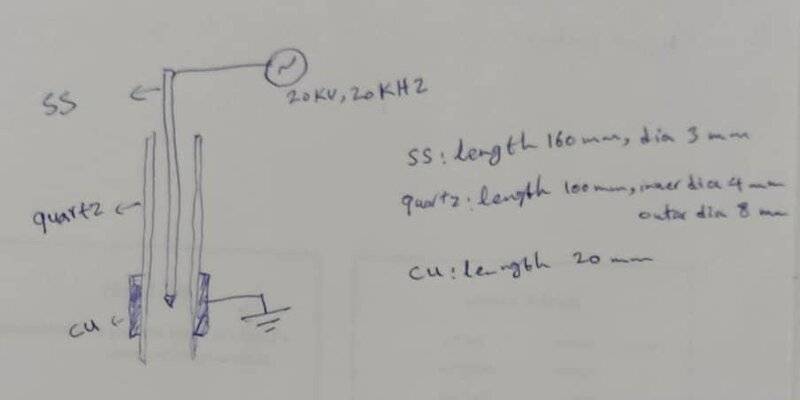 SS
20KV, 20KHZ
SS: length 160mm, dia 3 mm
quartz
quartz: length 100mm, inner dia 4 mm
outer dia 8 mm
CU: length 20 mm
CU